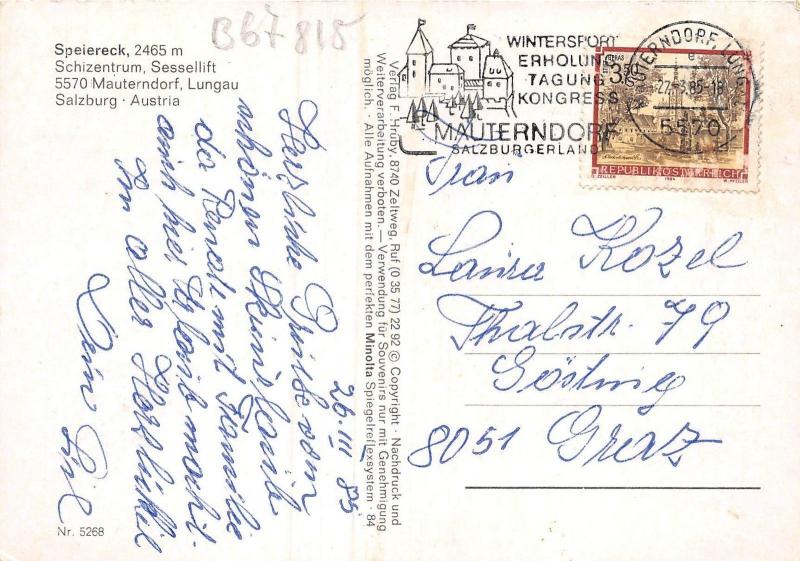 B67815
Speiereck, 2465 m
Schizentrum, Sessellift
5570 Mauterndorf, Lungau
Salzburg · Austria
26. III 85
Herzliche Grüße vom
schönen Skiurlaub
da Renate mit Familie
auch hier Urlaub macht.
In aller Herzlichkeit
Dein
Nr. 5268
Verlag F. Hruby, 8740 Zeltweg, Ruf (0 35 77) 22 92 © Copyright · Nachdruck und
Weiterverarbeitung verboten. — Verwendung für Souvenirs nur mit Genehmigung
möglich. · Alle Aufnahmen mit dem perfekten Minolta Spiegelreflexsystem · 84
WINTERSPORT
ERHOLUNG
TAGUNG
KONGRESS
MAUTERNDORF
SALZBURGERLAND
MAUTERNDORF, LUNGAU
e
27.-3.85-18
5570
REPUBLIK ÖSTERREICH
O. ZEILLER 1984 W. PFEILER
Frau
Kozel
Thalstr. 79
Gösting
8051 Graz